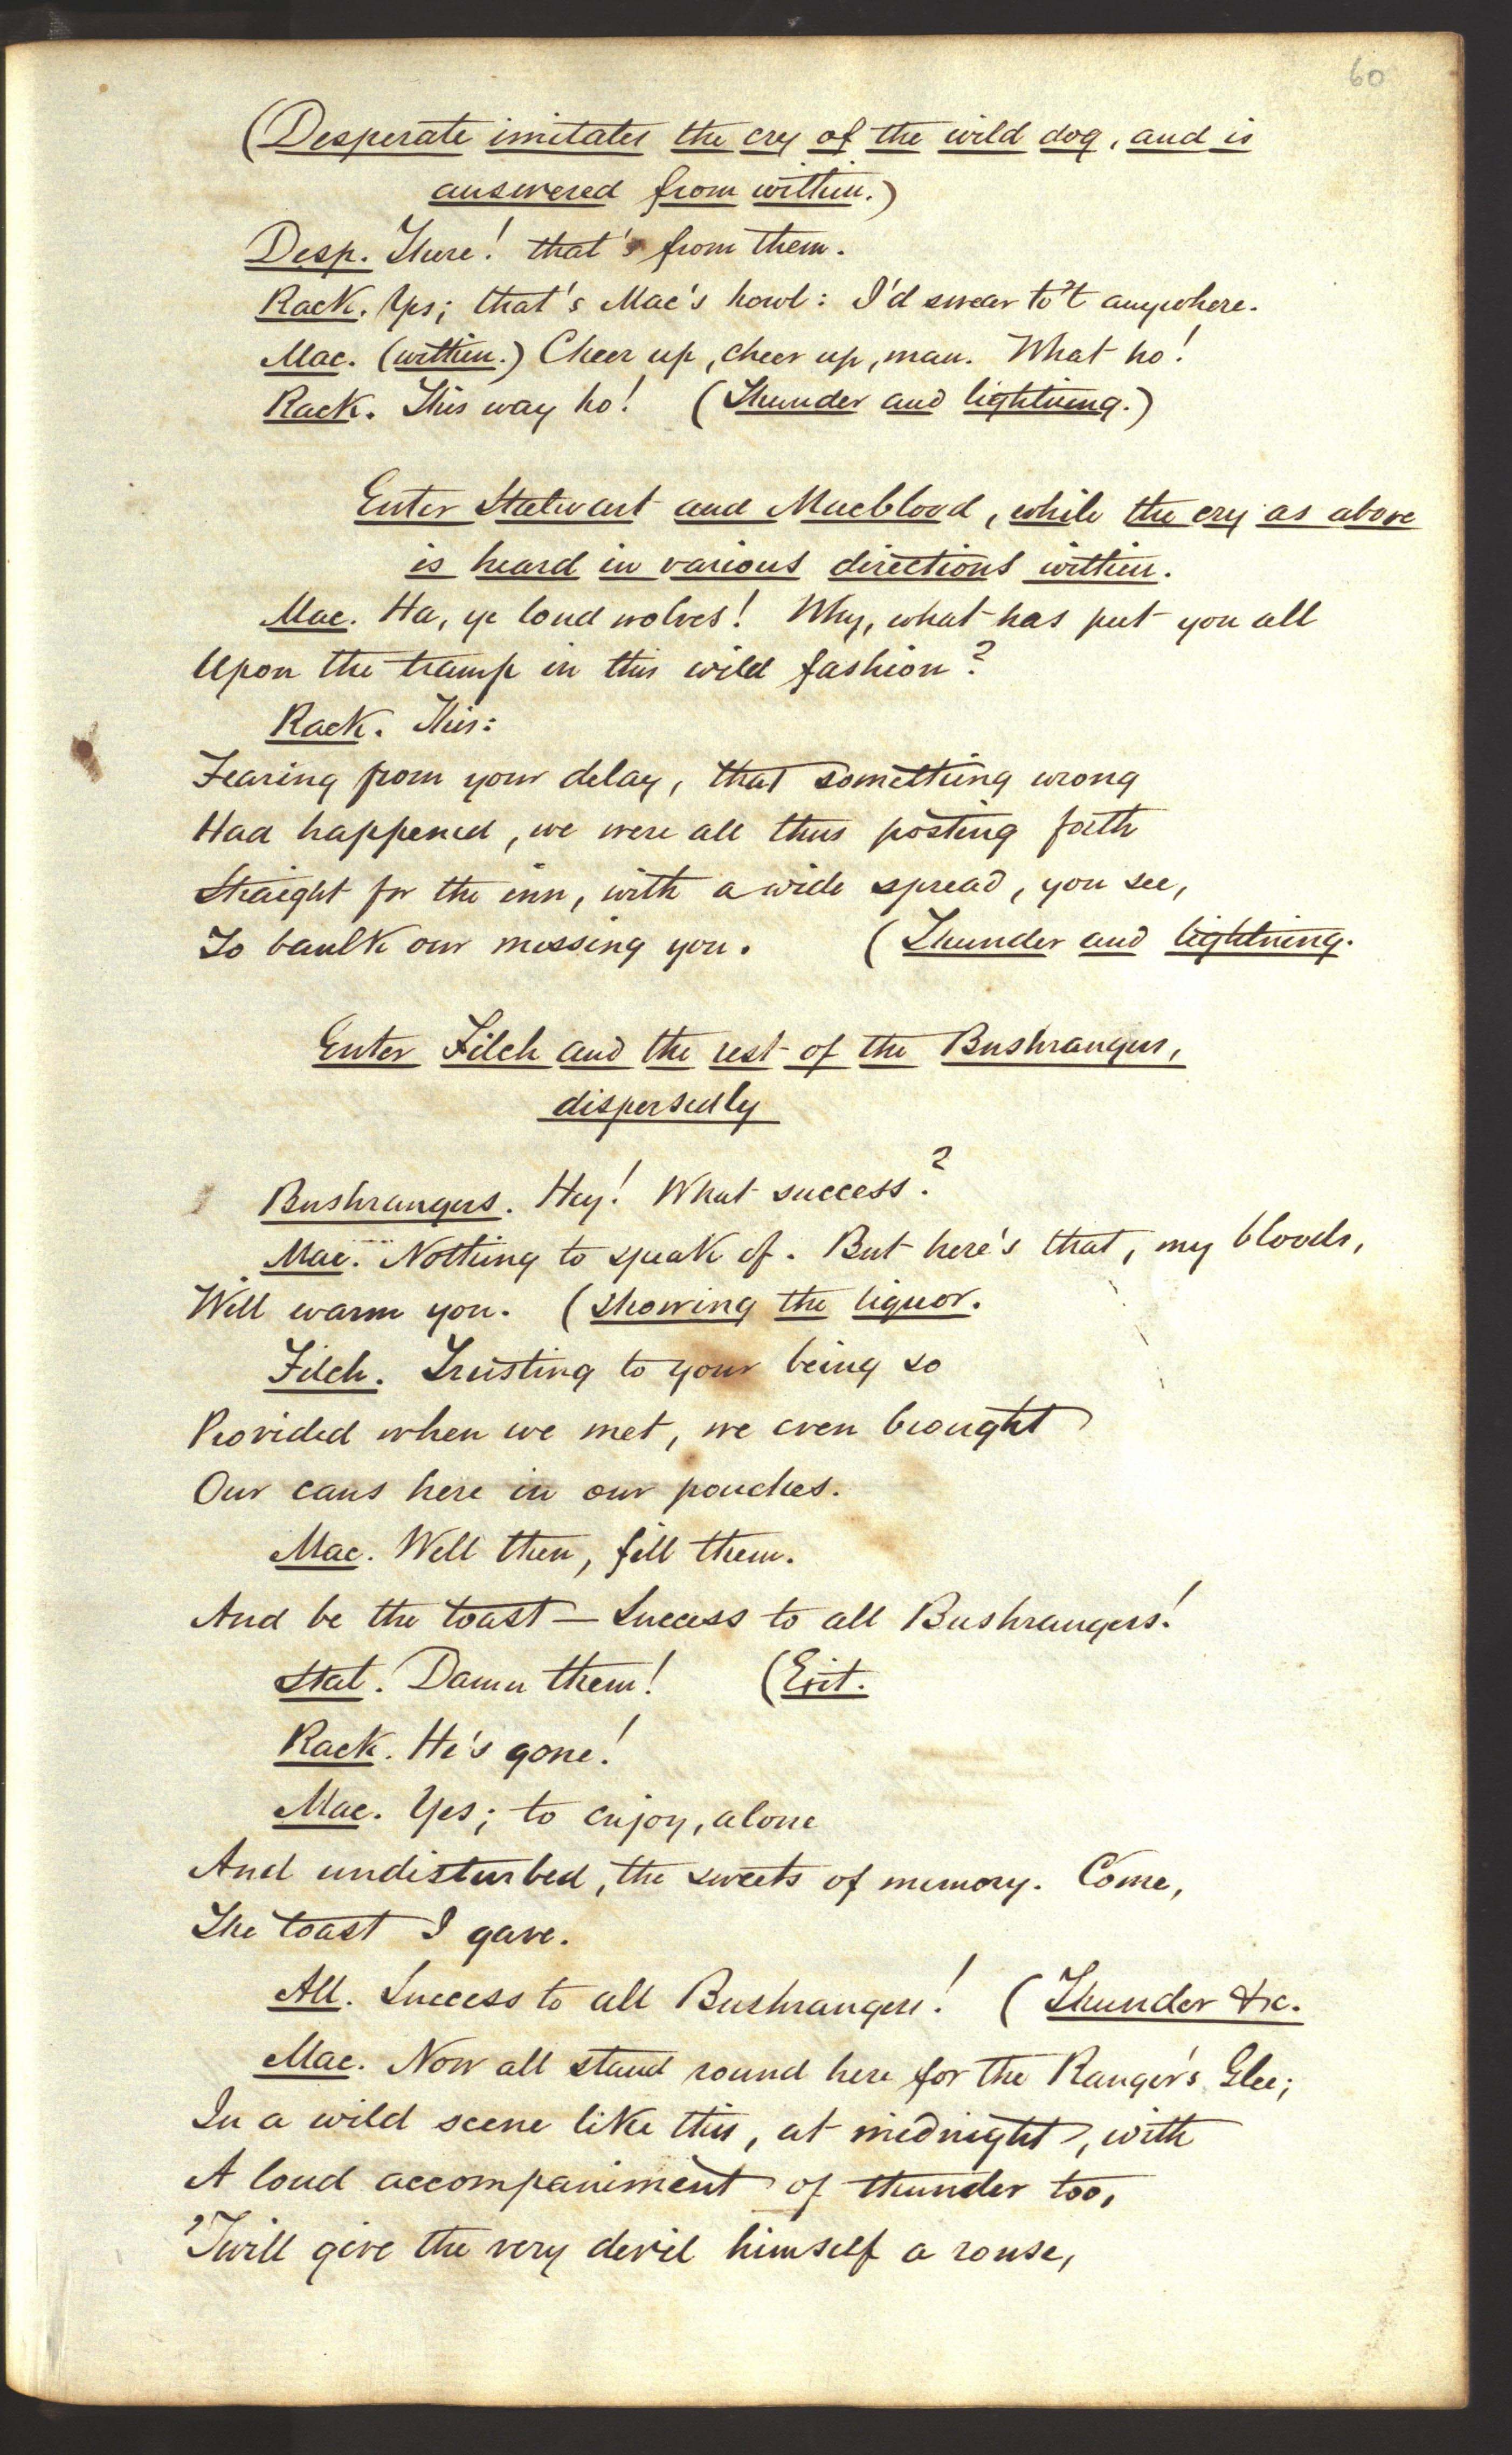 60
(Desperate imitates the cry of the wild dog, and is
answered from within.)
Desp. There! that's from them.
Rack. Yes; that's Mac's howl: I'd swear to't anywhere.
Mac. (within.) Cheer up, cheer up, man. What ho!
Rack. This way ho! (Thunder and lightning.)
Enter Stalwart and Macblood, while the cry as above
is heard in various directions within.
Mac. Ha, ye loud wolves! Why, what has put you all
Upon the tramp in this wild fashion?
Rack. This:
Fearing from your delay, that something wrong
Had happened, we were all thus posting forth
Straight for the inn, with a wide spread, you see,
To baulk our missing you. (Thunder and lightning.
Enter Filch and the rest of the Bushrangers,
dispersedly
Bushrangers. Hey! What success?
Mac. Nothing to speak of. But here's that, my bloods,
Will warm you. (Showing the liquor.
Filch. Trusting to your being so
Provided when we met, we even brought
Our cans here in our pouches.
Mac. Well then, fill them.
And be the toast — Success to all Bushrangers!
Stal. Damn them! (Exit.
Rack. He's gone!
Mac. Yes; to enjoy, alone
And undisturbed, the sweets of memory. Come,
The toast I gave.
All. Success to all Bushrangers! (Thunder &c.
Mac. Now all stand round here for the Ranger's Glee;
In a wild scene like this, at midnight, with
A loud accompaniment of thunder too,
'Twill give the very devil himself a rouse,